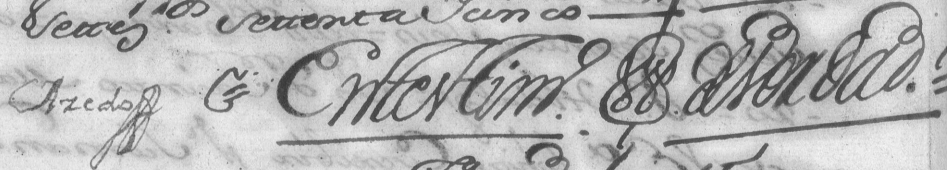 Settes.tos Settenta Sinco
Azedo Em testim.º de Verdad.e